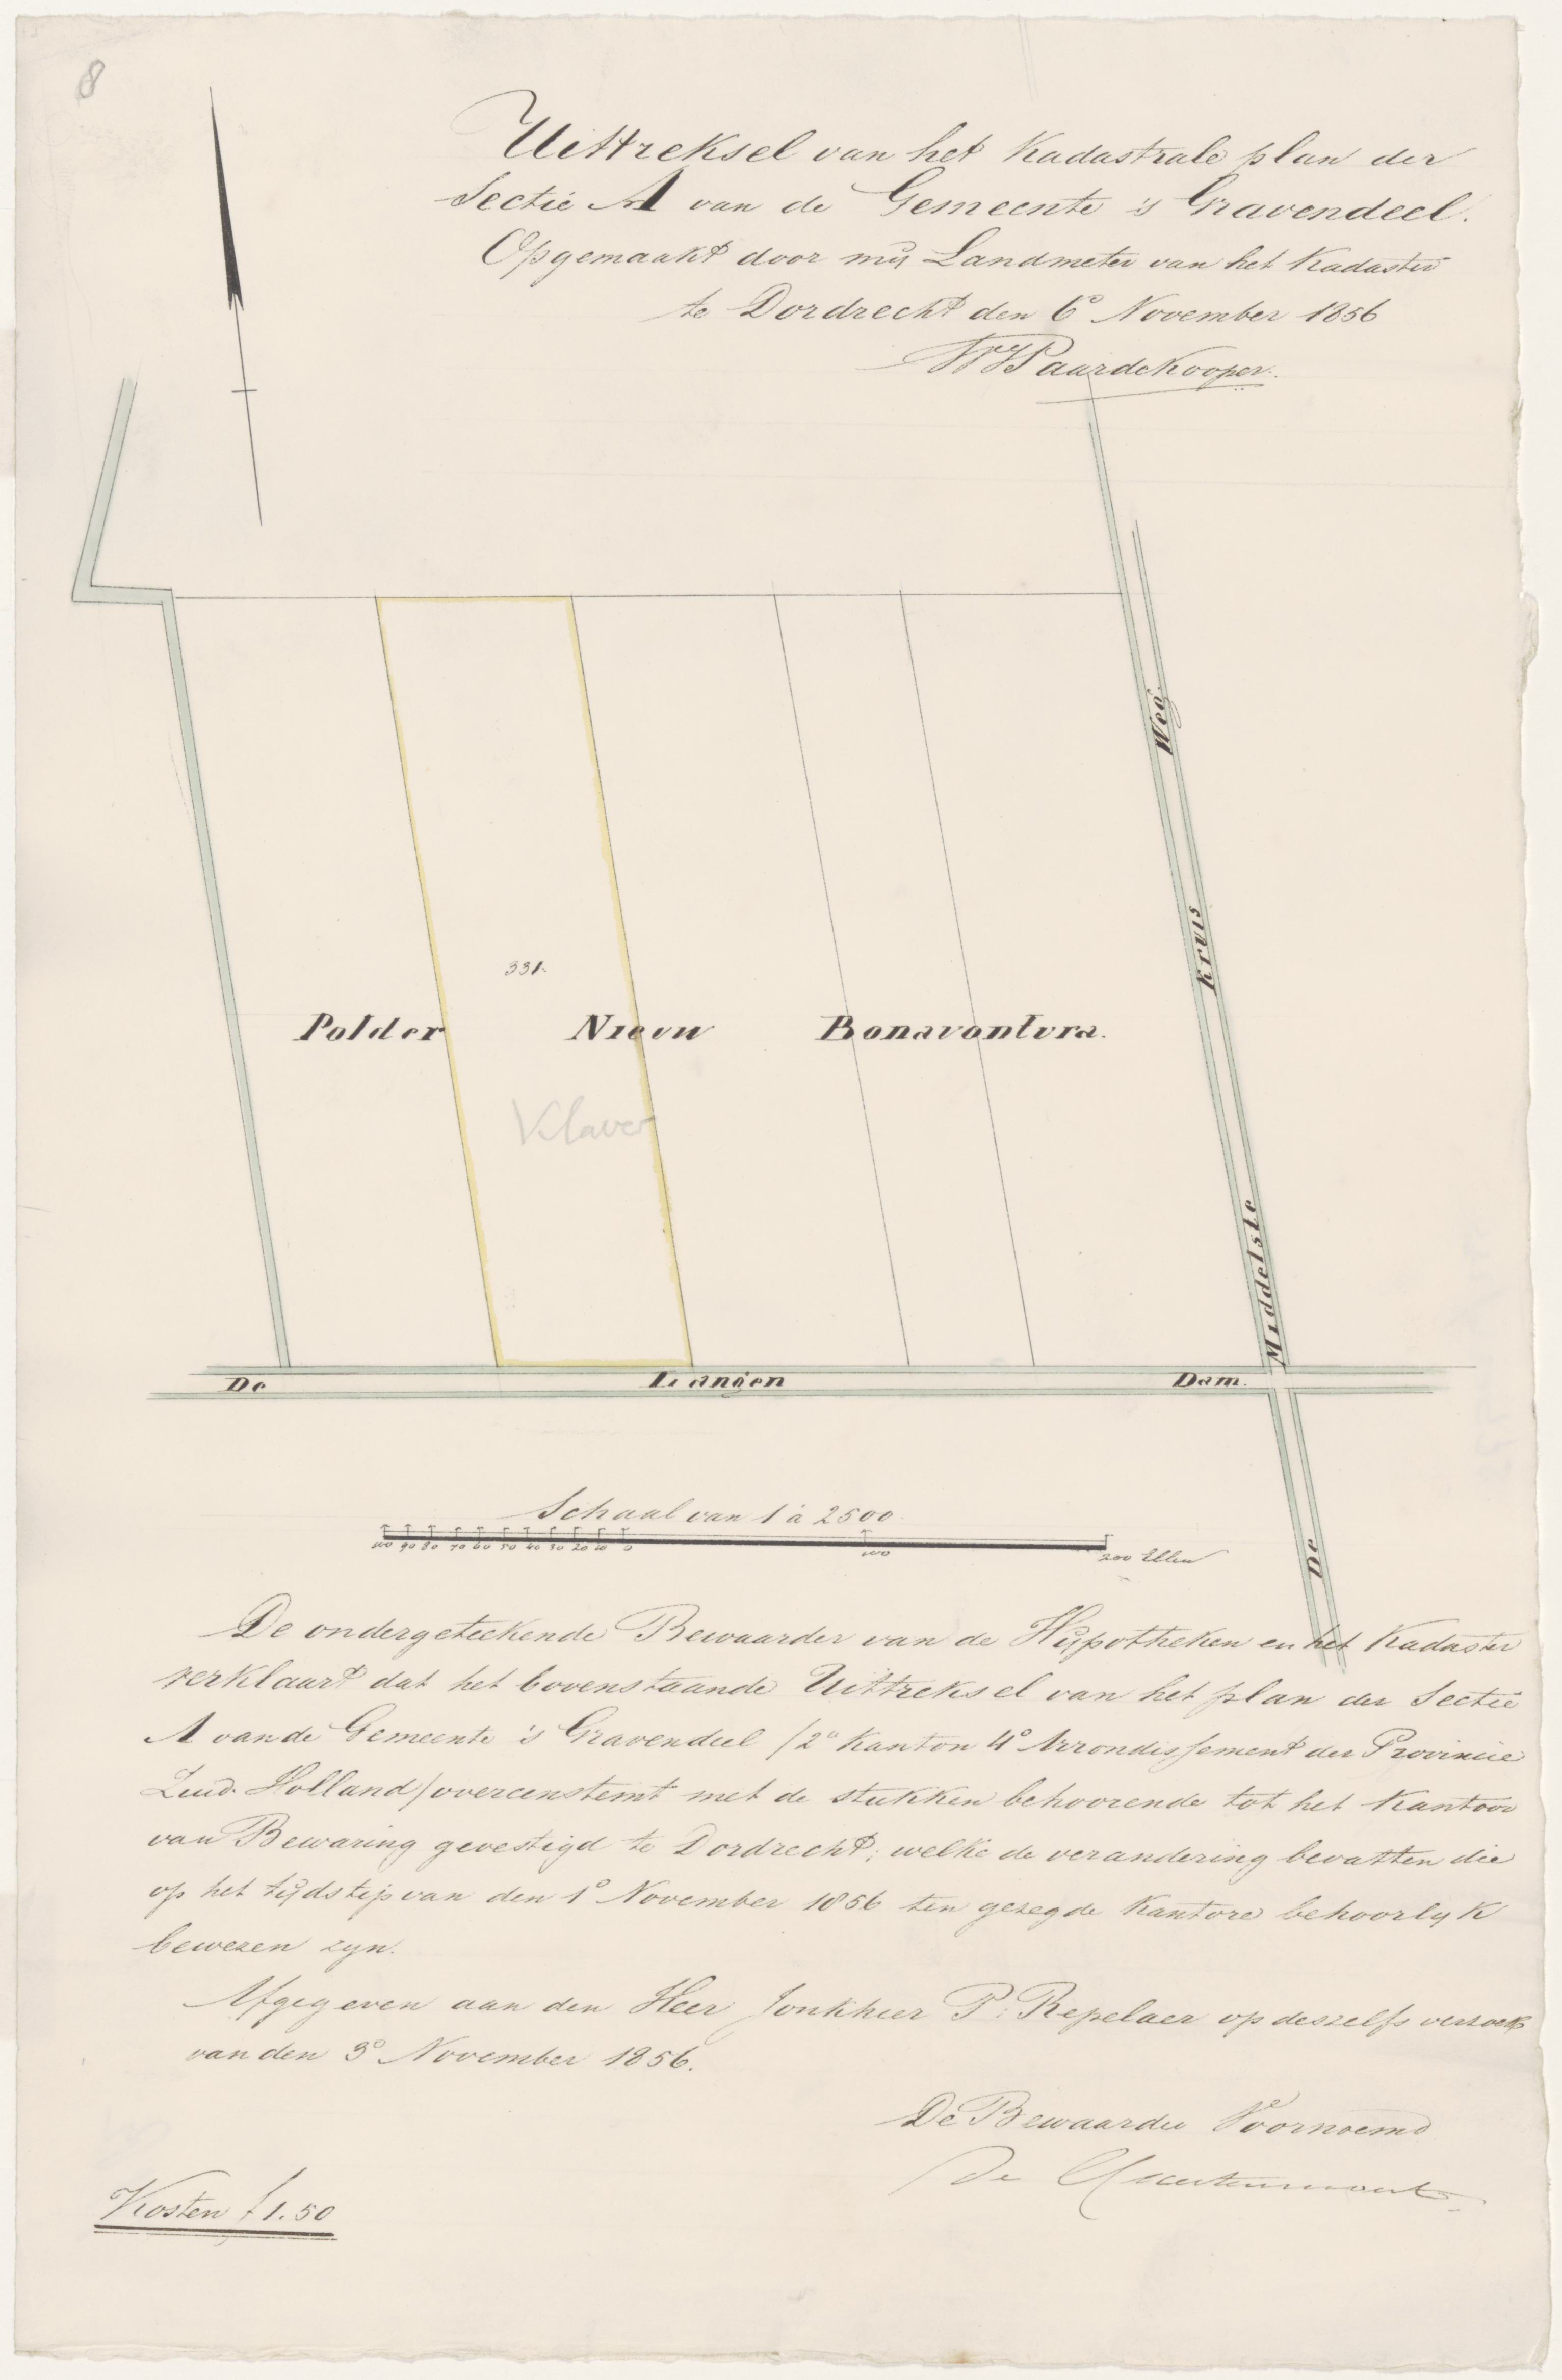 8
Uittreksel van het Kadastrale plan der
Sectie A van de Gemeente 's Gravendeel.
Opgemaakt door mij Landmeter van het Kadaster
te Dordrecht den 6e November 1856
Paardekooper.
Weg.
Kruis
331.
Polder Nieuw Bonavontura.
Klaver
Middelste
De Langen Dam.
Schaal van 1 à 2500.
100 90 80 70 60 50 40 30 20 10 0 100 200 Ellen
De
De ondergeteekende Bewaarder van de Hijpotheken en het Kadaster
verklaart dat het bovenstaande Uittreksel van het plan der Sectie
A van de Gemeente 's Gravendeel /2e Kanton 4e Arrondissement der Provincie
Zuid-Holland/ overeenstemt met de stukken behoorende tot het Kantoor
van Bewaring gevestigd te Dordrecht; welke de verandering bevatten die
op het tijdstip van den 1e November 1856 ten gezegde Kantore behoorlyk
bewezen zyn.
Afgegeven aan den Heer Jonkheer P: Repelaer op deszelfs verzoek
van den 3e November 1856.
De Bewaarder Voornoemd
De
Kosten f 1.50